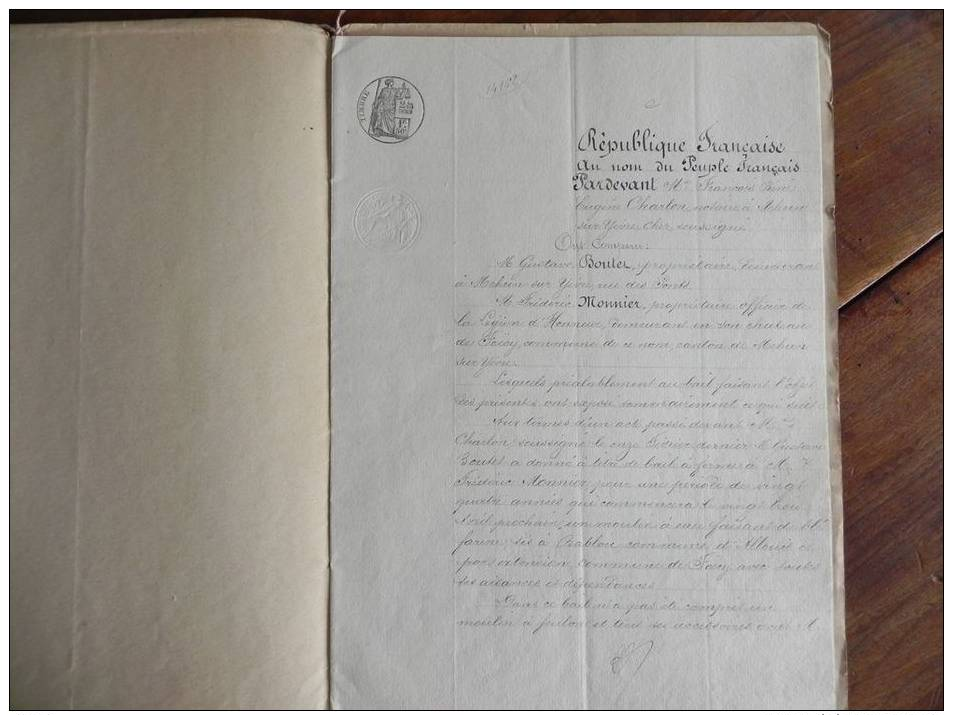 TIMBRE
République Française
Au nom du Peuple Français
Pardevant Me François
Eugène Charlon, notaire à Mehun
sur Yèvre, Cher, soussigné
Ont Comparu:
M. Gustave Boutet, propriétaire, demeurant
à Mehun sur Yèvre, rue des Ponts.
M. Frédéric Monnier, propriétaire, officier de
la Légion d'Honneur, demeurant en son château
de Foëcy, commune de ce nom, canton de Mehun
sur Yèvre.
Lesquels préalablement au bail faisant l'objet
des présentes ont exposé sommairement ce qui suit:
Aux termes d'un acte passé devant Me
Charlon soussigné le onze Février dernier M. Gustave
Boutet a donné à titre de bail à ferme à M.
Frédéric Monnier pour une période de vingt
quatre années qui commencera le vingt trois
Avril prochain, un moulin à eau faisant de blé
farine sis à commune d'Allouis et
par extension commune de Foëcy avec toutes
ses aisances et dépendances
Dans ce bail n'a pas été compris un
moulin à foulon et tous ses accessoires